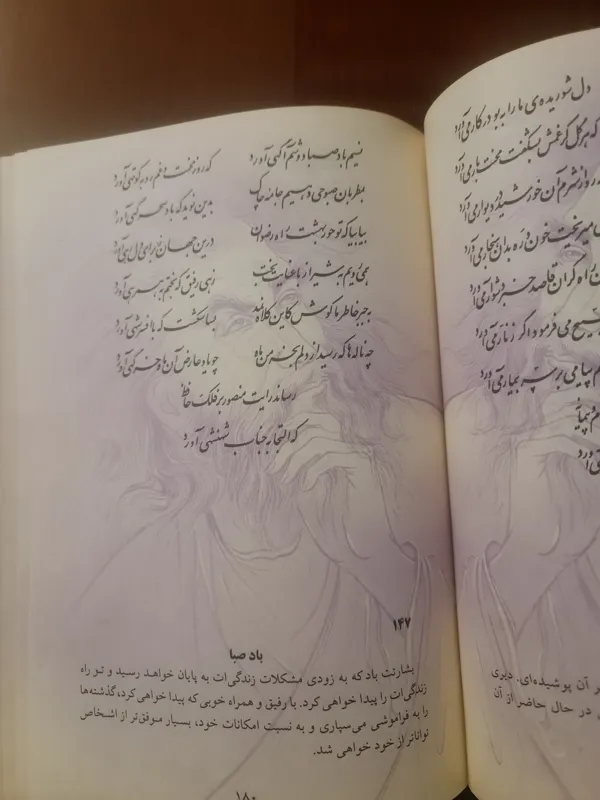 دل شوریده‌ی ما را به بو در کار می‌آورد
که هر گل کز غمش بشکفت محنت بار می‌آورد
رو از شرم آن خورشید در دیوار می‌آورد
می‌ریخت خون و ره بدان هنجار می‌آورد
راه گران قاصد خبر دشوار می‌آورد
می‌فرمود اگر زنار می‌آورد
پیامی بر سر بیمار می‌آورد
بر آن پوشیده‌ای. دیری
در حال حاضر از آن
نسیم باد صبا دوشم آگهی آورد که روز محنت و غم رو به کوتهی آورد
به مطربان صبوحی دهیم جامه چاک بدین نوید که باد سحرگهی آورد
بیا بیا که تو حور بهشت را رضوان درین جهان ز برای دل رهی آورد
همی رویم به شیراز با عنایت بخت زهی رفیق که بختم به همرهی آورد
به جبر خاطر ما کوش کاین کلاه نمد بسا شکست که با افسر شهی آورد
چه ناله‌ها که رسید از دلم به خرمن ماه چو یاد عارض آن ماه خرگهی آورد
رساند رایت منصور بر فلک حافظ
که التجا به جناب شهنشهی آورد
۱۴۷
باد صبا
بشارتت باد که به زودی مشکلات زندگی‌ات به پایان خواهد رسید و تو راه
زندگی‌ات را پیدا خواهی کرد. با رفیق و همراه خوبی که پیدا خواهی کرد، گذشته‌ها
را به فراموشی می‌سپاری و به نسبت امکانات خود، بسیار موفق‌تر از اشخاص
تواناتر از خود خواهی شد.
۱۸۰